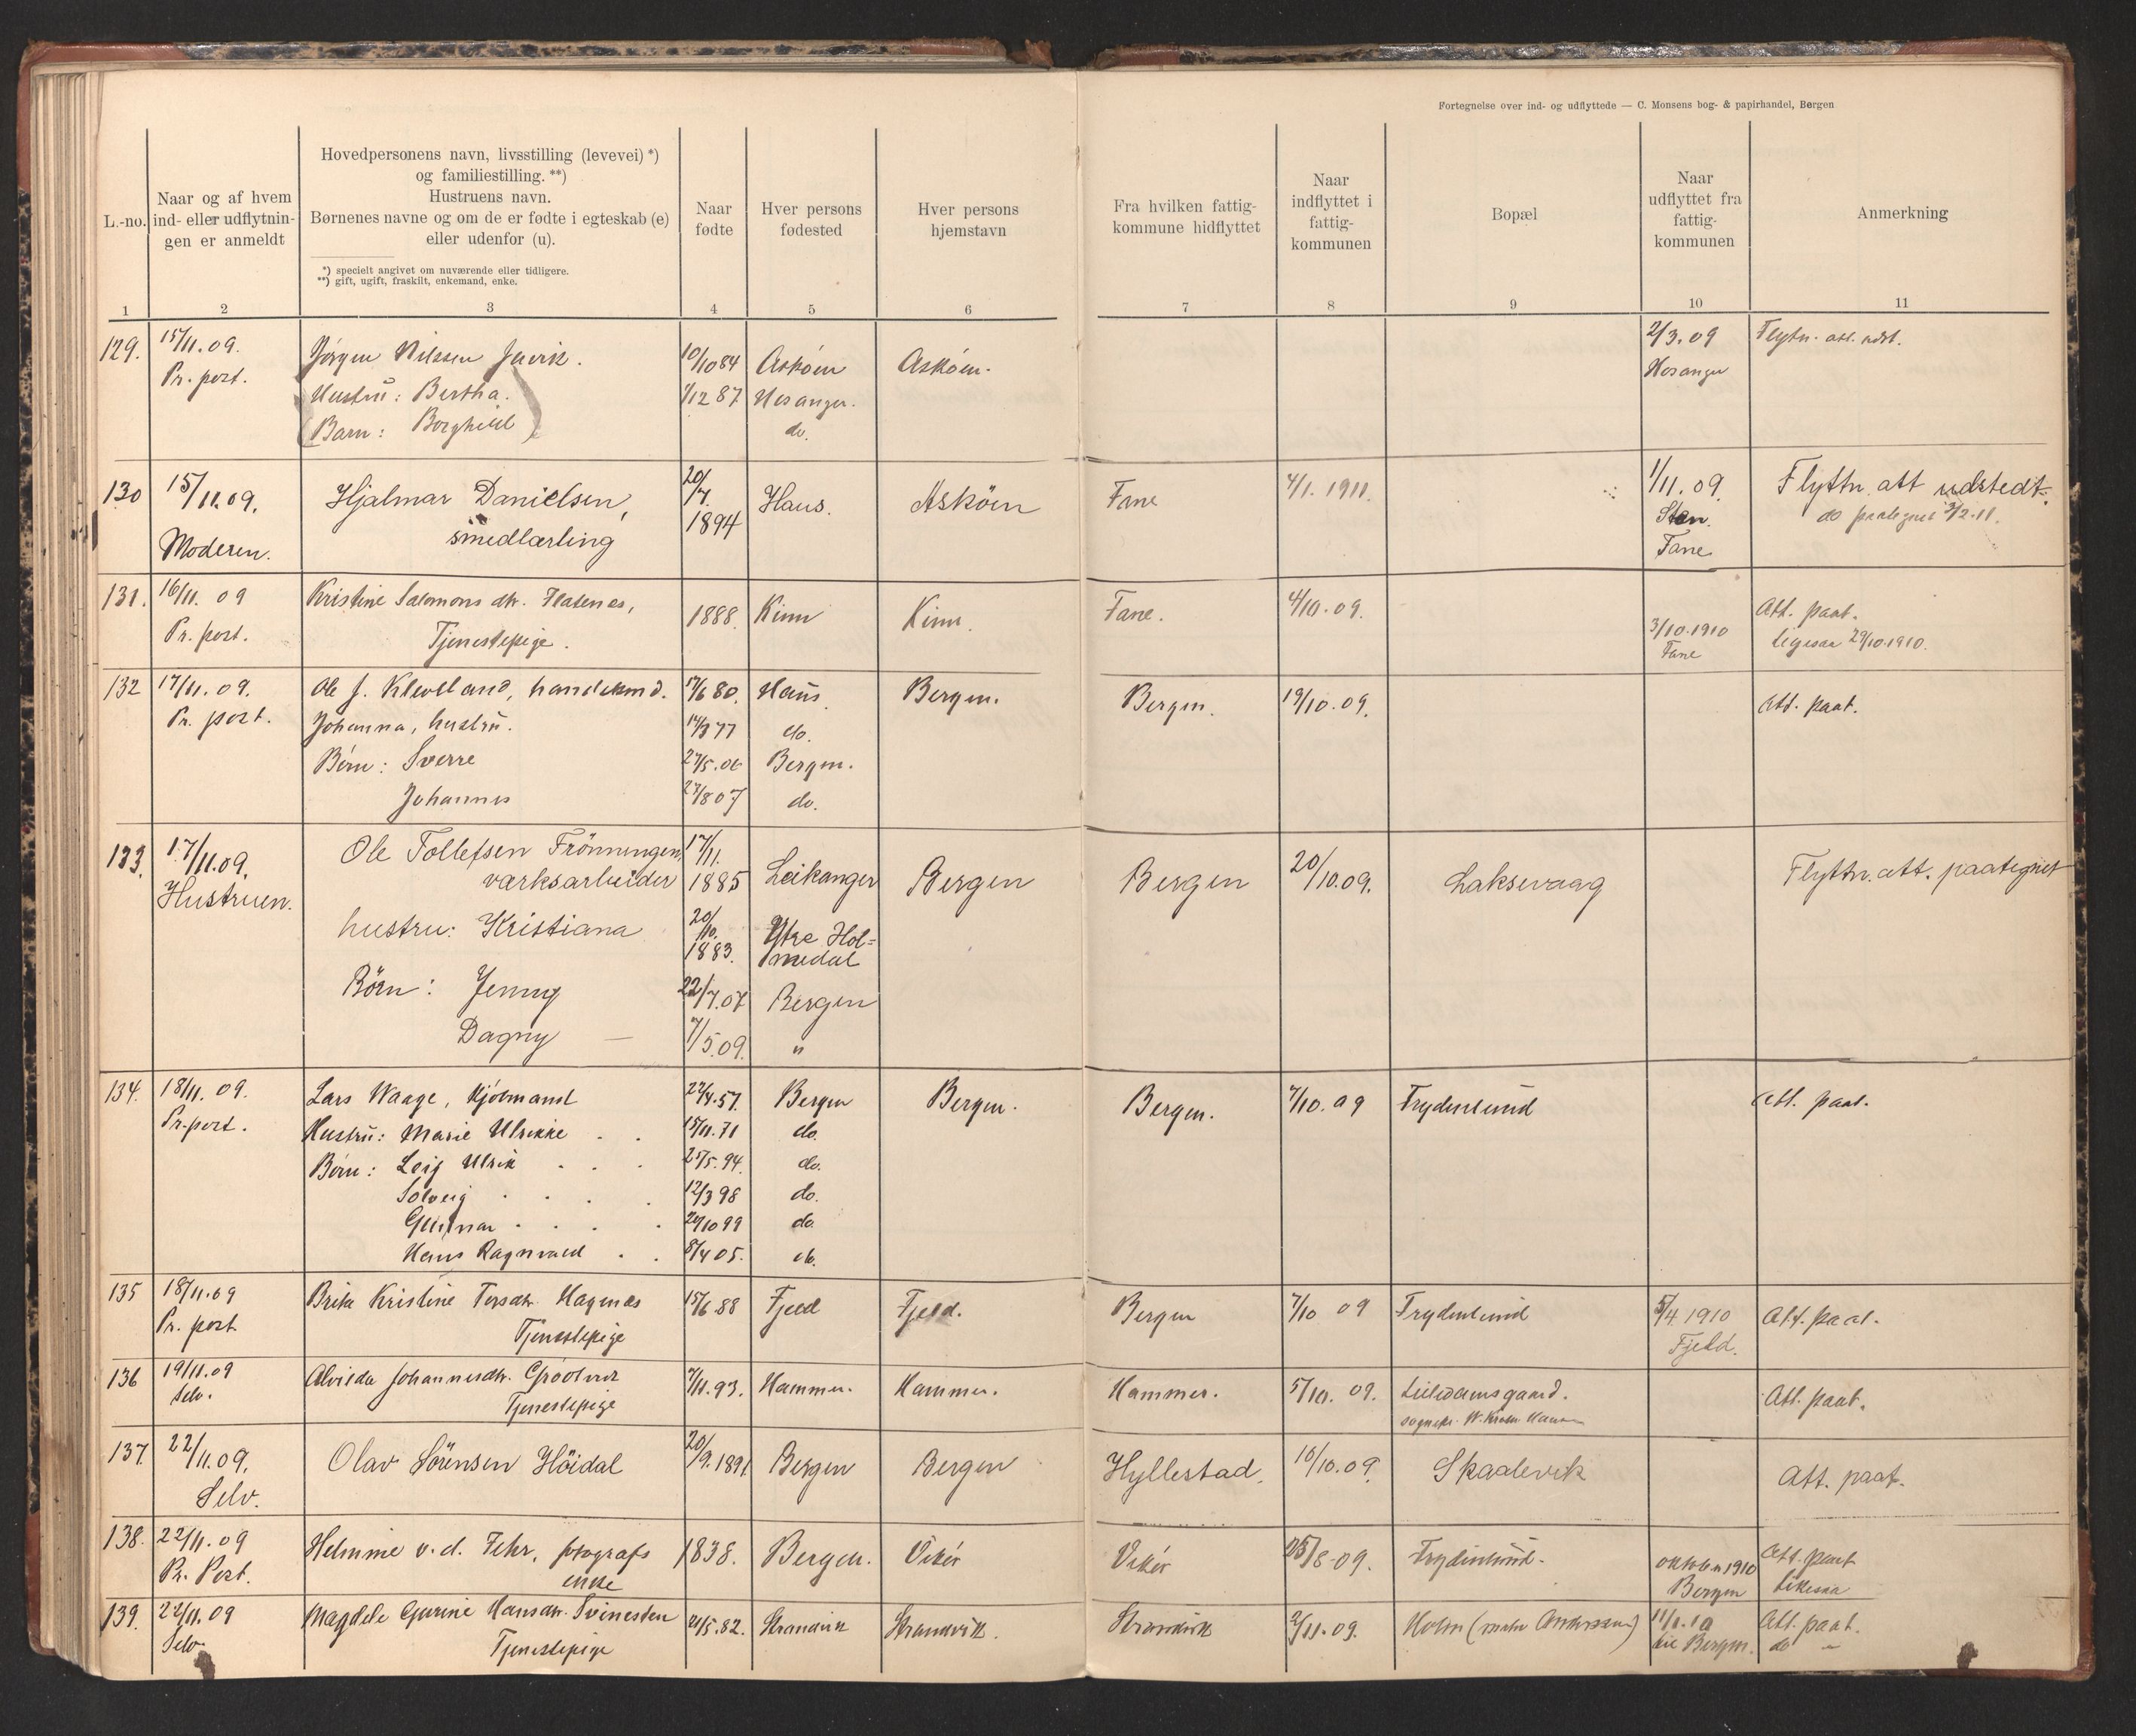 Fortegnelse over ind- og udflyttede — C. Monsens bog- & papirhandel, Bergen
L.-no.
Naar og af hvem
ind- eller udflytnin-
gen er anmeldt
Hovedpersonens navn, livsstilling (levevei) *)
og familiestilling. **)
Hustruens navn.
Børnenes navne og om de er fødte i egteskab (e)
eller udenfor (u).
*) specielt angivet om nuværende eller tidligere.
**) gift, ugift, fraskilt, enkemand, enke.
Naar
fødte
Hver persons
fødested
Hver persons
hjemstavn
Fra hvilken fattig-
kommune hidflyttet
Naar
indflyttet i
fattig-
kommunen
Bopæl
Naar
udflyttet fra
fattig-
kommunen
Anmerkning
1 2 3 4 5 6 7 8 9 10 11
129. 15/11.09. Jørgen Nilssen 10/10 84 Askøen Askøen. 2/3.09 Flytn. att. udst.
Pr. post. Hustru: Bertha. 1/12 87 Hosanger. Hosanger
(Barn: Borghild) do.
130 15/11.09. Hjalmar Danielsen, 20/7. 1894 Haus. Askøen Fane 4/1. 1911. 1/11.09. Flyttn. att udstedt.
Moderen. smedlærling Fane do paategnet 3/2.11.
131. 16/11. 09 Kristine Salomons dtr. Flatenes, 1888. Kinn Kinn. Fane. 4/10.09. Att. paat.
Pr. post. Tjenestepige. 3/10.1910 Fane ligesaa 29/10.1910.
132 17/11.09. Ole J. Kleveland, handelsmd. 17/6 80. Haus Bergen. Bergen. 19/10.09. Att. paat.
Pr. post. Johanna, hustru. 14/3 77 do.
Børn: Sverre 27/5.06 Bergen.
Johannes 27/8 07 do.
133. 17/11.09. Ole Tollefsen Frönningen, 17/11. 1885 Leikanger Bergen Bergen 20/10.09. Laksevaag Flyttn. att. paategnet
Hustruen. værksarbeider
hustru: Kristiana 20/10. 1883. Ytre Hol=
medal
Börn: Jenny 22/7.07 Bergen
Dagny — 7/5.09. "
134. 18/11.09. Lars Waage, Kjøbmand 27/4.57. Bergen Bergen. Bergen. 7/10.09 Frydenlund Att. paat.
Pr. post. Hustru: Marie Ulrikke 15/11.71 do.
Børn: Leif Ulrik 25/5.94. do.
Solveig 12/3 98 do.
Gunnar 24/10 99 do.
Hans Ragnvald 8/4 05. do.
135 18/11.09 Brita Kristine Torsdtr. Hagenæs 15/6 88 Fjeld Fjeld. Bergen 7/10 09 Frydenlund 5/4 1910 Att. paat.
Pr. post Tjenestepige Fjeld.
136 19/11.09 Alvilda Johannesdtr. 7/11.93. Hammer. Hammer. Hammer. 5/10. 09. Att. paat.
Selv. Tjenestepige
137. 22/11.09. Olav Sörensen Höidal 20/9.1891 Bergen Bergen Hyllestad. 16/10.09. Skaalevik Att. paat.
Selv.
138. 22/11.09 Helmine v.d. Fehr, fotografs 1838. Bergen. Vikør Vikør 25/8-09. Frydenlund. oktober 1910 Att. paat
Pr. Post. enke Bergen likesaa
139. 22/11.09 Magdele Gurine Hansdtr. Svinesten 21/5.82. Strandvik Strandvik. Strandvik 2/11.09. Holm 11/1.10 Att. paat.
Selv. Tjenestepige til Bergen. do "